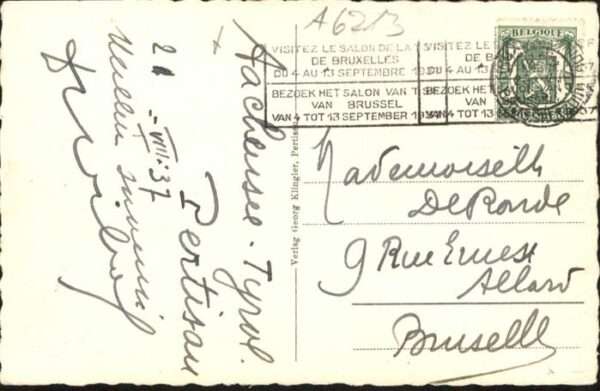 A6213
Aachensee - Tyrol.
Pertisau
21 - VIII - 37
Meilleur souvenir
Verlag Georg Klingler, Pertisau
VISITEZ LE SALON DE LA T
DE BRUXELLES
DU 4 AU 13 SEPTEMBRE 193
BEZOEK HET SALON VAN T
VAN BRUSSEL
VAN 4 TOT 13 SEPTEMBER 193
VISITEZ LE
DE B
DU 4 AU 13
BEZOEK HET
VAN
VAN 4 TOT 13 SE
BELGIQUE
Mademoiselle
De Ronde
9 Rue Ernest
Allard
Bruxelles